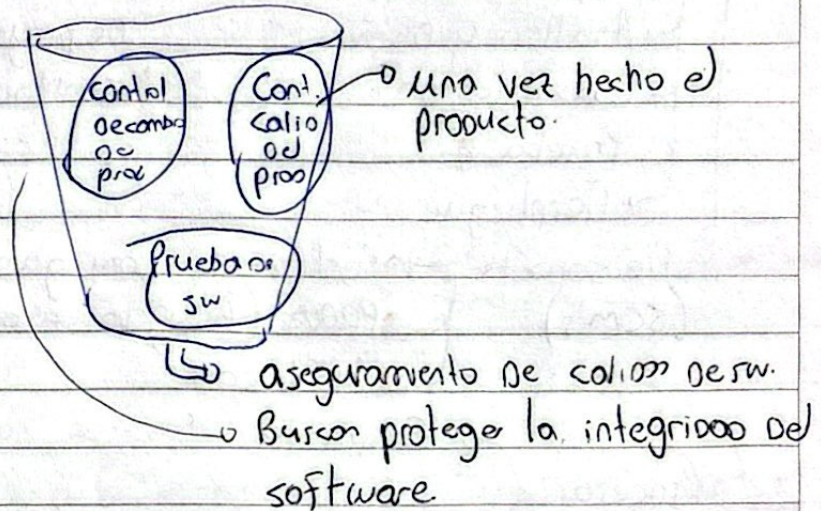 Control
de cambio
de
prod
Cont.
calid
del
prod
una vez hecho el
producto.
Prueba de
sw
aseguramiento de calidad de sw.
Buscan proteger la integridad del
software.